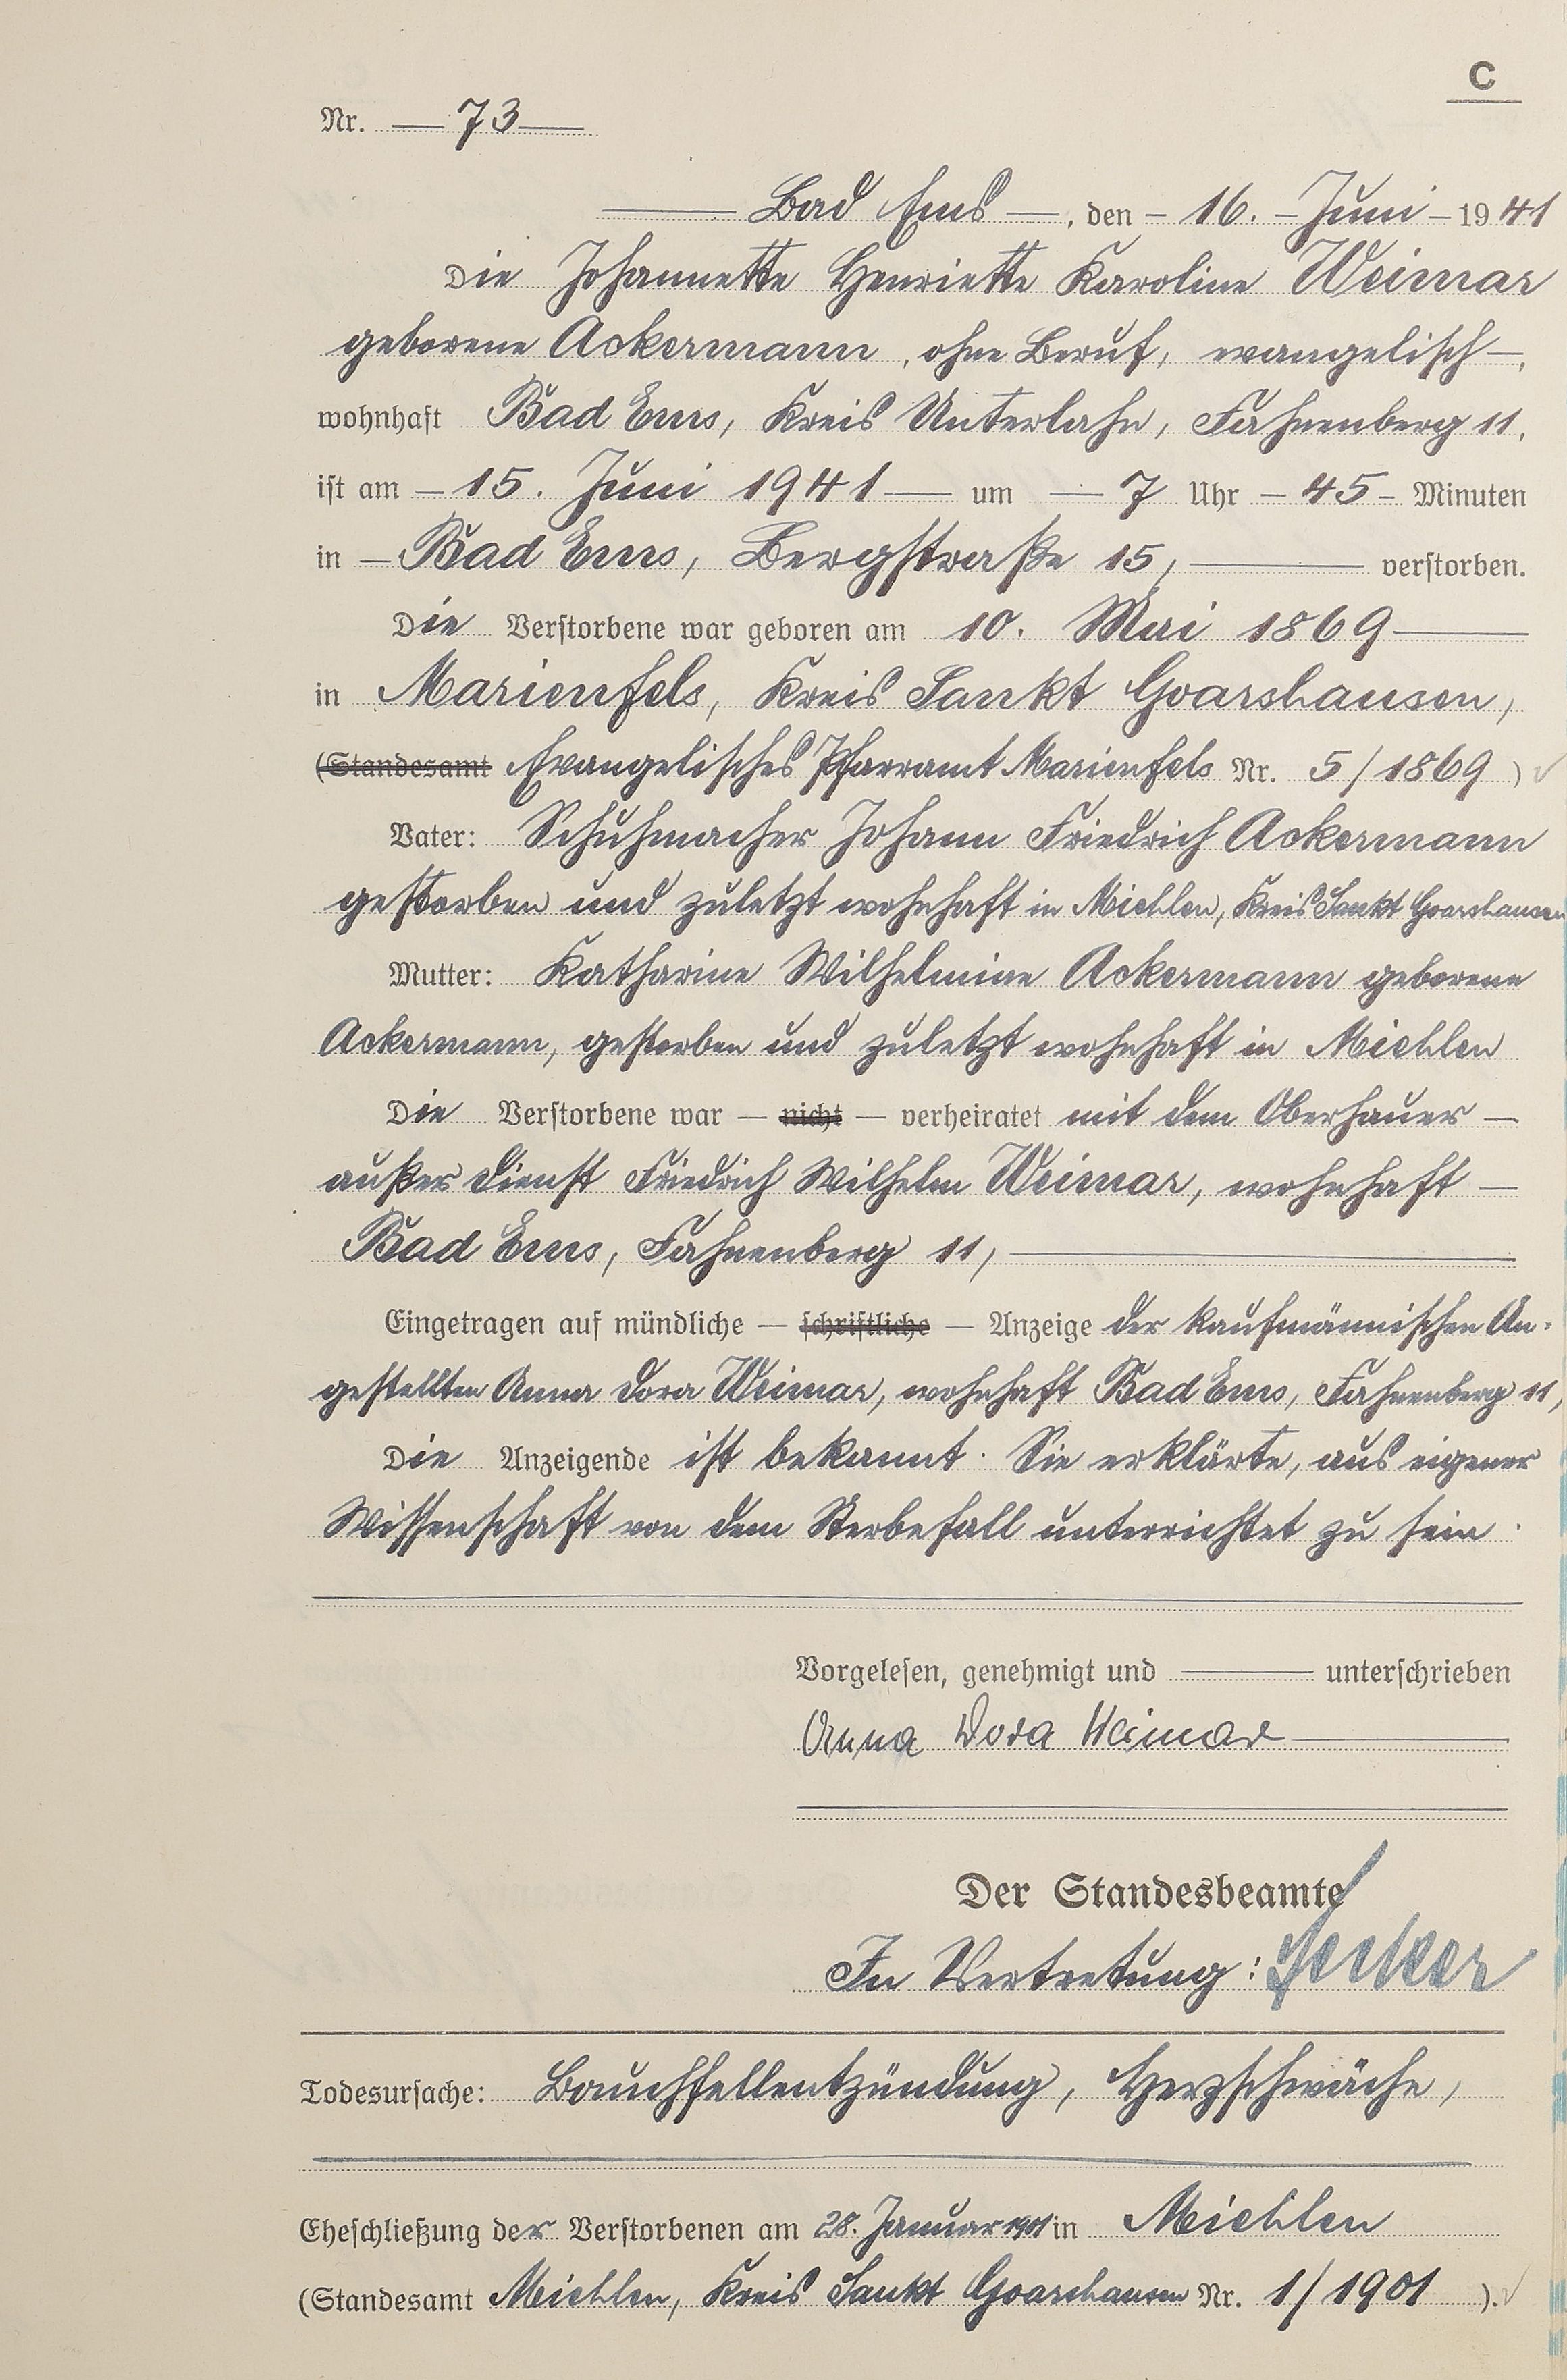 C
Nr. — 73 —
— Bad Ems —, den – 16. – Juni – 1941
Die Johannette Henriette Karoline Weimar
geborene Ackermann, ohne Beruf, evangelisch —,
wohnhaft Bad Ems, Kreis Unterlahn, Fahnenberg 11,
ist am – 15. Juni 1941 — um — 7 Uhr – 45 – Minuten
in – Bad Ems, Bergstraße 15, — verstorben.
Die Verstorbene war geboren am 10. Mai 1869 —
in Marienfels, Kreis Sankt Goarshausen,
(Standesamt Evangelisches Pfarramt Marienfels Nr. 5/1869)
Vater: Schuhmacher Johann Friedrich Ackermann
gestorben und zuletzt wohnhaft in Miehlen, Kreis Sankt Goarshausen
Mutter: Katharine Wilhelmine Ackermann geborene
Ackermann, gestorben und zuletzt wohnhaft in Miehlen
Die Verstorbene war — nicht — verheiratet mit dem Oberhauer —
außer Dienst Friedrich Wilhelm Weimar, wohnhaft —
Bad Ems, Fahnenberg 11, —
Eingetragen auf mündliche — schriftliche — Anzeige der kaufmännischen An-
gestellten Anna Dora Weimar, wohnhaft Bad Ems, Fahnenberg 11,
Die Anzeigende ist bekannt. Sie erklärte, aus eigener
Wissenschaft von dem Sterbefall unterrichtet zu sein.
Vorgelesen, genehmigt und — unterschrieben
Anna Dora Weimar —
Der Standesbeamte
In Vertretung:
Todesursache: Bauchfellentzündung, Herzschwäche,
Eheschließung der Verstorbenen am 28. Januar 1901 in Miehlen
(Standesamt Miehlen, Kreis Sankt Goarshausen Nr. 1/1901).